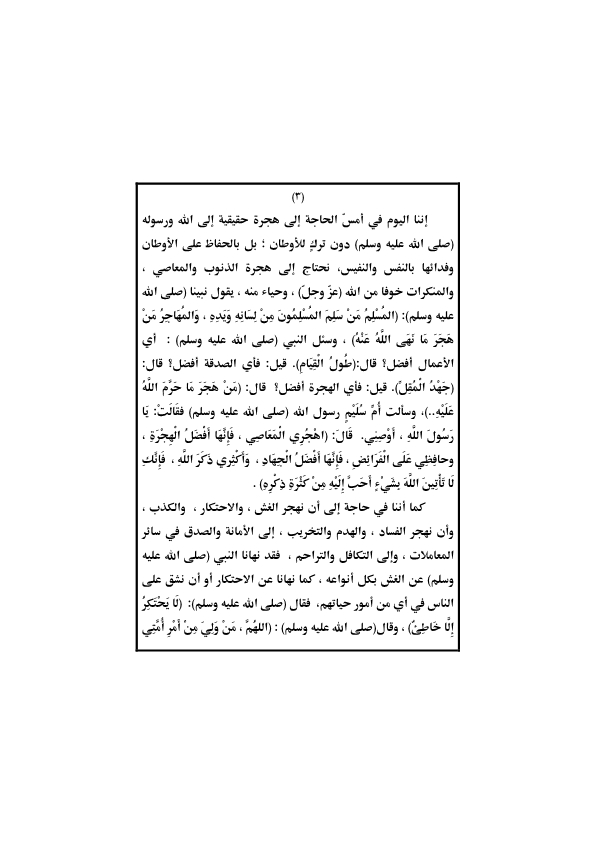 (٣)
إننا اليوم في أمسّ الحاجة إلى هجرة حقيقية إلى الله ورسوله
(صلى الله عليه وسلم) دون تركٍ للأوطان ؛ بل بالحفاظ على الأوطان
وفدائها بالنفس والنفيس، نحتاج إلى هجرة الذنوب والمعاصي ،
والمنكرات خوفا من الله (عزّ وجلّ) ، وحياء منه ، يقول نبينا (صلى الله
عليه وسلم): (المُسْلِمُ مَنْ سَلِمَ المُسْلِمُونَ مِنْ لِسَانِهِ وَيَدِهِ ، وَالمُهَاجِرُ مَنْ
هَجَرَ مَا نَهَى اللَّهُ عَنْهُ) ، وسئل النبي (صلى الله عليه وسلم) : أي
الأعمال أفضل؟ قال:(طُولُ الْقِيَامِ). قيل: فأي الصدقة أفضل؟ قال:
(جَهْدُ الْمُقِلِّ). قيل: فأي الهجرة أفضل؟ قال: (مَنْ هَجَرَ مَا حَرَّمَ اللَّهُ
عَلَيْهِ..)، وسألت أُمُّ سُلَيْمٍ رسول الله (صلى الله عليه وسلم) فقَالَتْ: يَا
رَسُولَ اللَّهِ ، أَوْصِنِي. قَالَ: (اهْجُرِي الْمَعَاصِي ، فَإِنَّهَا أَفْضَلُ الْهِجْرَةِ ،
وحافِظِي عَلَى الْفَرَائِضِ ، فَإِنَّهَا أَفْضَلُ الْجِهَادِ ، وَأَكْثِرِي ذِكْرَ اللَّهِ ، فَإِنَّكِ
لَا تَأْتِينَ اللَّهَ بِشَيْءٍ أَحَبَّ إِلَيْهِ مِنْ كَثْرَةِ ذِكْرِهِ) .
كما أننا في حاجة إلى أن نهجر الغش ، والاحتكار ، والكذب ،
وأن نهجر الفساد ، والهدم والتخريب ، إلى الأمانة والصدق في سائر
المعاملات ، وإلى التكافل والتراحم ، فقد نهانا النبي (صلى الله عليه
وسلم) عن الغش بكل أنواعه ، كما نهانا عن الاحتكار أو أن نشق على
الناس في أي من أمور حياتهم، فقال (صلى الله عليه وسلم): (لَا يَحْتَكِرُ
إِلَّا خَاطِئٌ) ، وقال(صلى الله عليه وسلم) : (اللهُمَّ ، مَنْ وَلِيَ مِنْ أَمْرِ أُمَّتِي